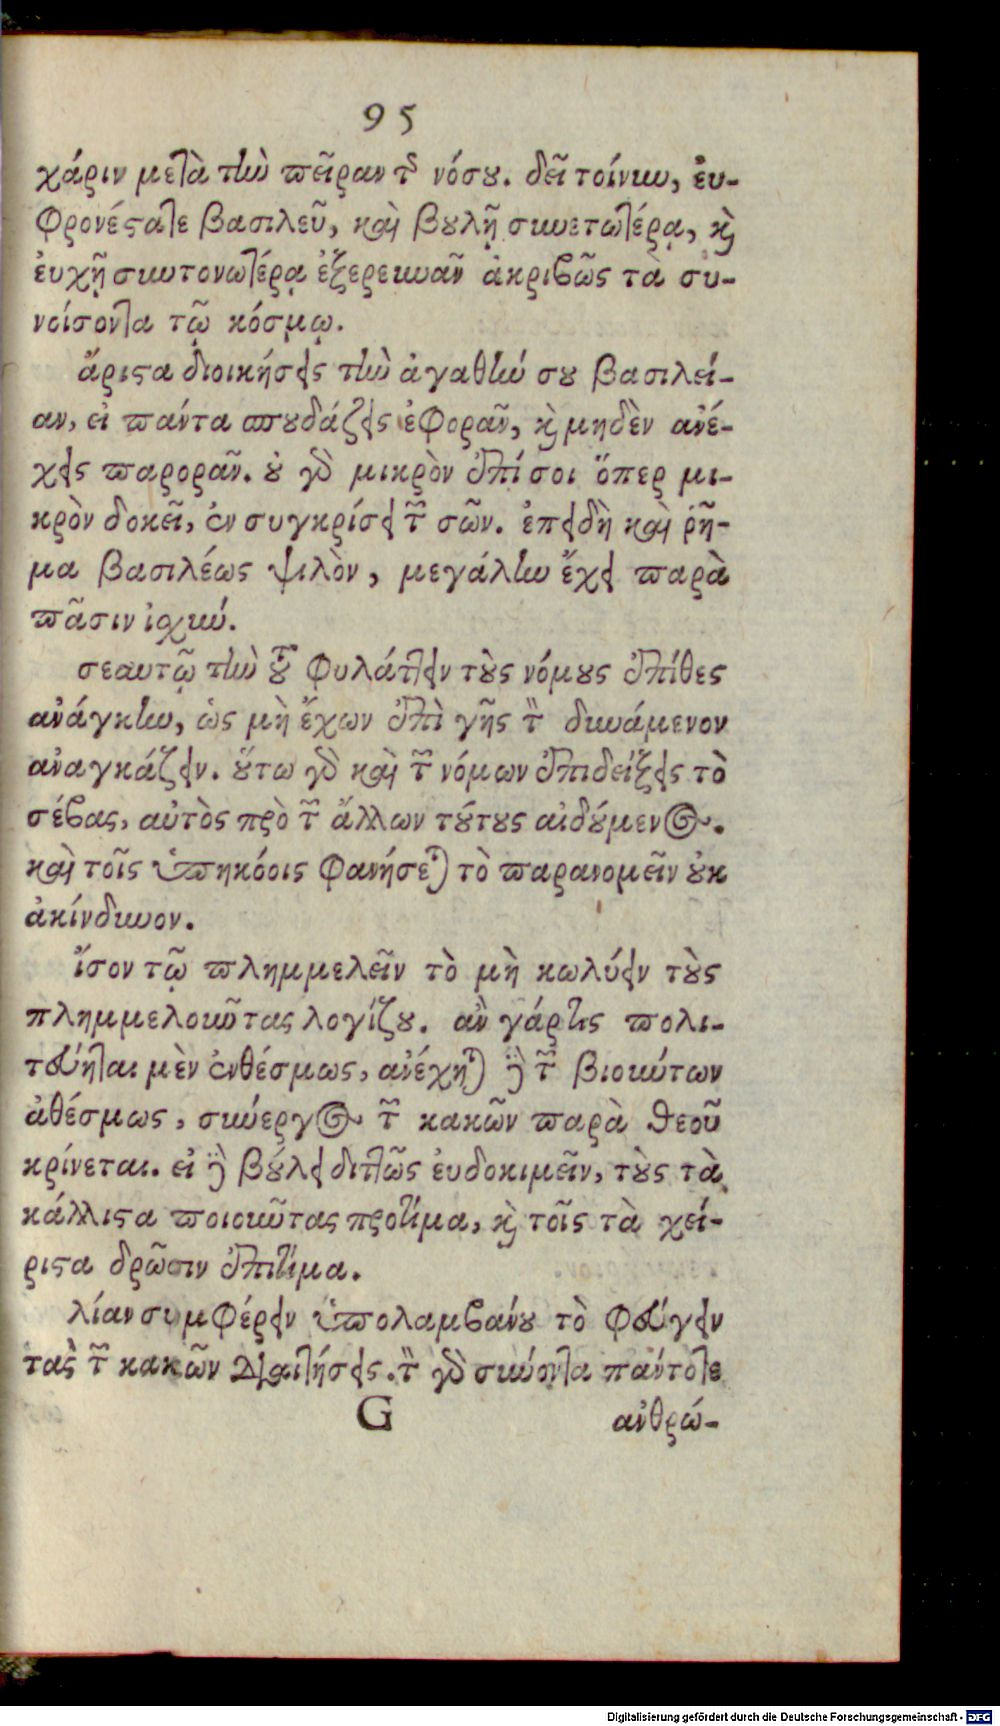 95
χάριν μετὰ τὴν πεῖραν τῆς νόσου. δεῖ τοίνυν, ἐυ-
φρονέστατε βασιλεῦ, καὶ βουλῇ συνετωτέρᾳ, καὶ
ἐυχῇ συντονωτέρᾳ ἐξερευνᾶν ἀκριβῶς τὰ συ-
νοίσοντα τῷ κόσμῳ.
ἄριστα διοικήσεις τὴν ἀγαθήν σου βασιλεί-
αν, εἰ πάντα σπουδάζεις ἐφορᾶν, καὶ μηδὲν ἀνέ-
χεις παρορᾶν. οὐ γὰρ μικρὸν ἐπί σοι ὅπερ μι-
κρὸν δοκεῖ, ἐν συγκρίσει τῶν σῶν. ἐπειδὴ καὶ ῥῆ-
μα βασιλέως ψιλὸν, μεγάλην ἔχει παρὰ
πᾶσιν ἰσχύν.
σεαυτῷ τὴν τοῦ φυλάττειν τοὺς νόμους ἐπίθες
ἀνάγκην, ὡς μὴ ἔχων ἐπὶ γῆς τὸν δυνάμενον
ἀναγκάζειν. οὕτω γὰρ καὶ τῶν νόμων ἐπιδείξεις τὸ
σέβας, αὐτὸς πρὸ τῶν ἄλλων τούτους αἰδούμενος.
καὶ τοῖς ὑπηκόοις φανήσεται τὸ παρανομεῖν οὐκ
ἀκίνδυνον.
ἴσον τῷ πλημμελεῖν τὸ μὴ κωλύειν τοὺς
πλημμελοῦντας λογίζου. ἂν γάρ τις πολι-
τεύηται μὲν ἐνθέσμως, ἀνέχηται δὲ τῶν βιούντων
ἀθέσμως, συνεργὸς τῶν κακῶν παρὰ θεοῦ
κρίνεται. εἰ δὲ βούλει διττῶς ἐυδοκιμεῖν, τοὺς τὰ
κάλλιστα ποιοῦντας προτίμα, καὶ τοῖς τὰ χεί-
ριστα δρῶσιν ἐπιτίμα.
λίαν συμφέρειν ὑπολαμβάνω τὸ φεύγειν
τὰς τῶν κακῶν διαιτήσεις. τὸν γὰρ συνόντα πάντοτε
G ἀνθρώ-
Digitalisierung gefördert durch die Deutsche Forschungsgemeinschaft - DFG